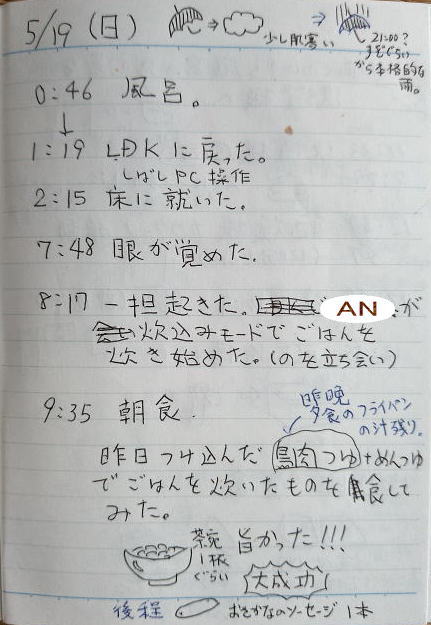 5/19 (日) → 少し肌寒い ⇒ 21:00?
すぎぐらい
から本格的な
雨。
0:46 風呂。
↓
1:19 LDKに戻った。
しばしPC操作
2:15 床に就いた。
7:48 眼が覚めた.
8:17 一担起きた。 AN.が
炊込みモードでごはんを
炊き始めた。(のを立ち会い)
9:35 朝食.
昨晩
夕食のフライパン
の汁残り。
昨日つけ込んだ 鳥肉つゆ+めんつゆ
でごはんを炊いたものを食して
みた。
茶碗
1杯
ぐらい
旨かった!!!
大成功
後程 おさかなのソーセージ 1本